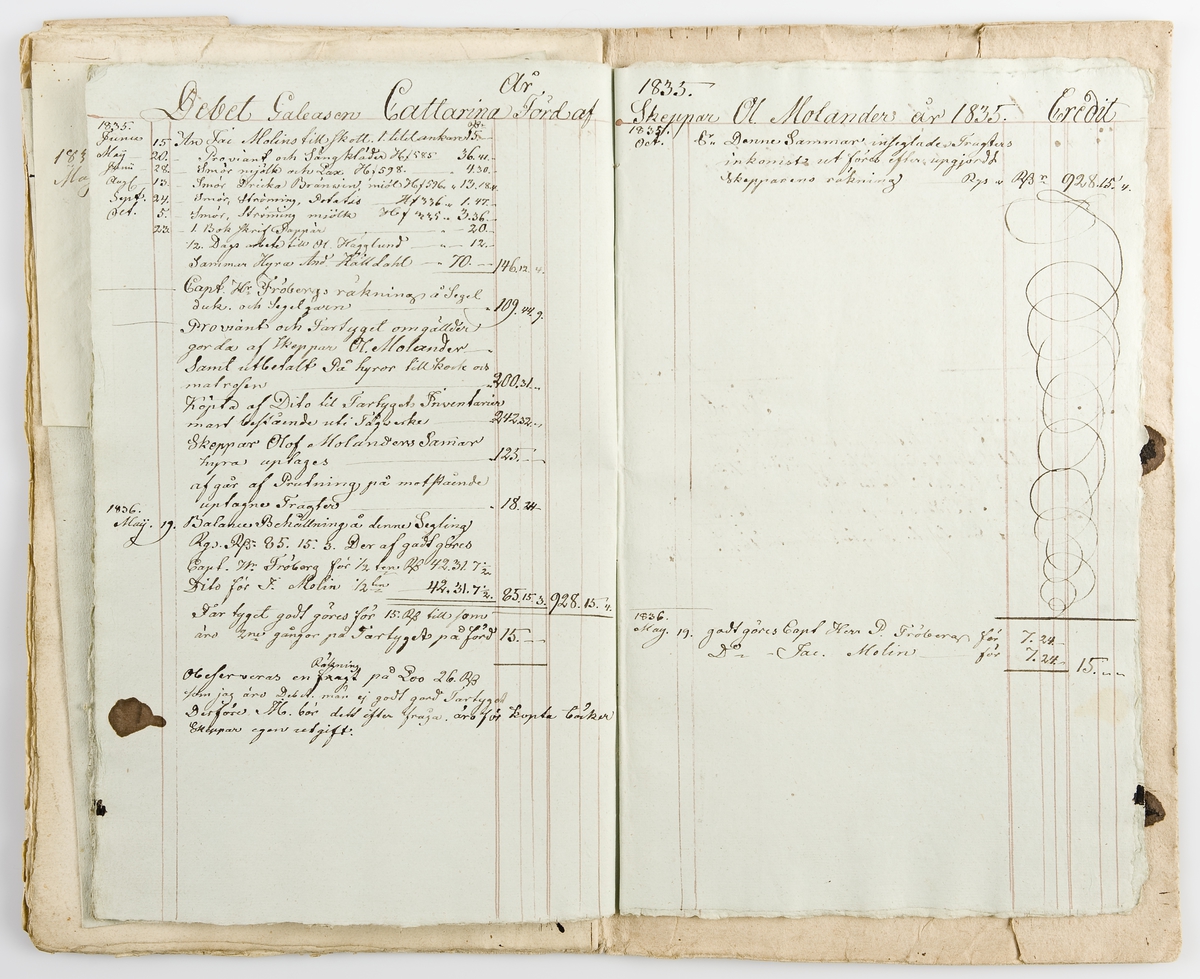 År 1835.
Debet Galeasen Cattarina Förd af Skeppar Ol Molander år 1835. Credit
1835.
Junii 15 An Jac Molins till skott. 1 lildankare 15.
Maij 20. Proviant och Sängkläder Hf 585 36.41.
Junii 28. Smör mjölk och Lax. Hf 598. 4.30.
Aug 13. Smör Dricka Branwin, miöl Hf 596 13.18.4
Sept. 24. Smör, Strömming, Potates Hf 336 1.47.
Oct. 5. Smör, Strömming mjölk Hf 335 3.36.
23. 1. Bok skrif Pappär 20.
12. Dags arbete till Ol. Hägglund 12.
Sammar Hyra And Hälldahl 70. 146.12.4.
Capt. Hr Frobergs räkning å Segel
duk. och Segelgarn 109.44.9.
Proviant och Fartyget omgällder
gorda af Skeppar Ol. Molander
Samt utbetalt På hyror till kock och
matrosen 200.31.
Köpta af Dito til Fartygets Inventarier
mart bestående uti Tågverke 242.32.
Skeppar Olof Molanders Samar
hyra uptages 125.
afgår af Prutning på motstående
uptagne Fragter 18.24
1836.
Maij. 19. Balance Behållning å denne Segling
Rgs. Rß 85. 15. 3. Der af godt göres
Capt. Hr Fröberg för 1/2 ten Rß 42.31.7 1/2
Dito för J. Molin 1/2 ten 42.31.7 1/2. 85.15.3. 928.15.4.
Fartyget godt göres för 15. Rß till som
års 2ne gångor på Fartyget på förd 15.
Räkning
Obeserveras en fragt på Loo 26. Rß
som jag års Debet. man ej godt gord Fartyget
Derföre M. bör dett efter fråga. års för kopta böcker
Skeppar egen utgift.
1835.
Oct. Er Denne Sammar inseglade Fragters
inkomst ut föres efter upgjorde
Skepparens räkning Rgs Rß 928.15.4.
1836
May. 19. godt göres Capt Herr P. Fröberg för 7.24
Do Jac. Molin för 7.24 15.